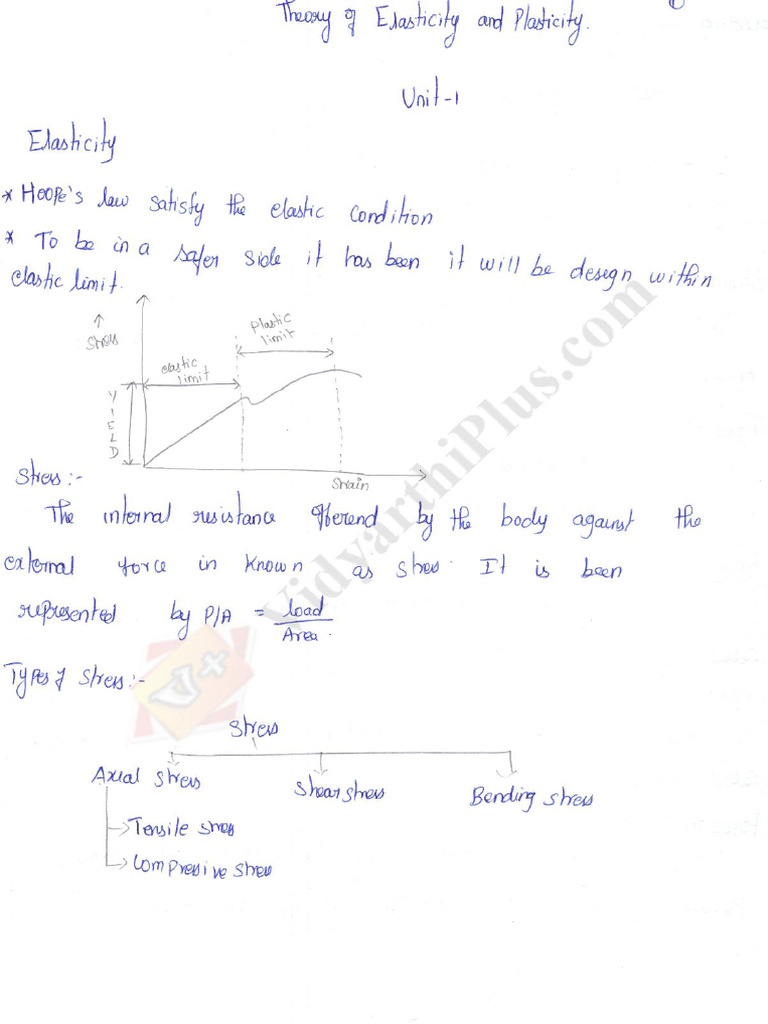 Theory of Elasticity and Plasticity.
Unit-1
Elasticity
* Hoope's law satisfy the elastic condition
* To be in a safer side it has been it will be design within
elastic limit.
Plastic
limit
↑
Stress
elastic
limit
YIELD
Strain
Stress:-
The internal resistance offerend by the body against the
external force in known as stress. It is been
represented by P/A = Load
Area.
Types of Stress:-
Stress
Axial stress
Shear stress
Bending stress
→ Tensile stress
→ Compressive stress
VidyarthiPlus.com
V+